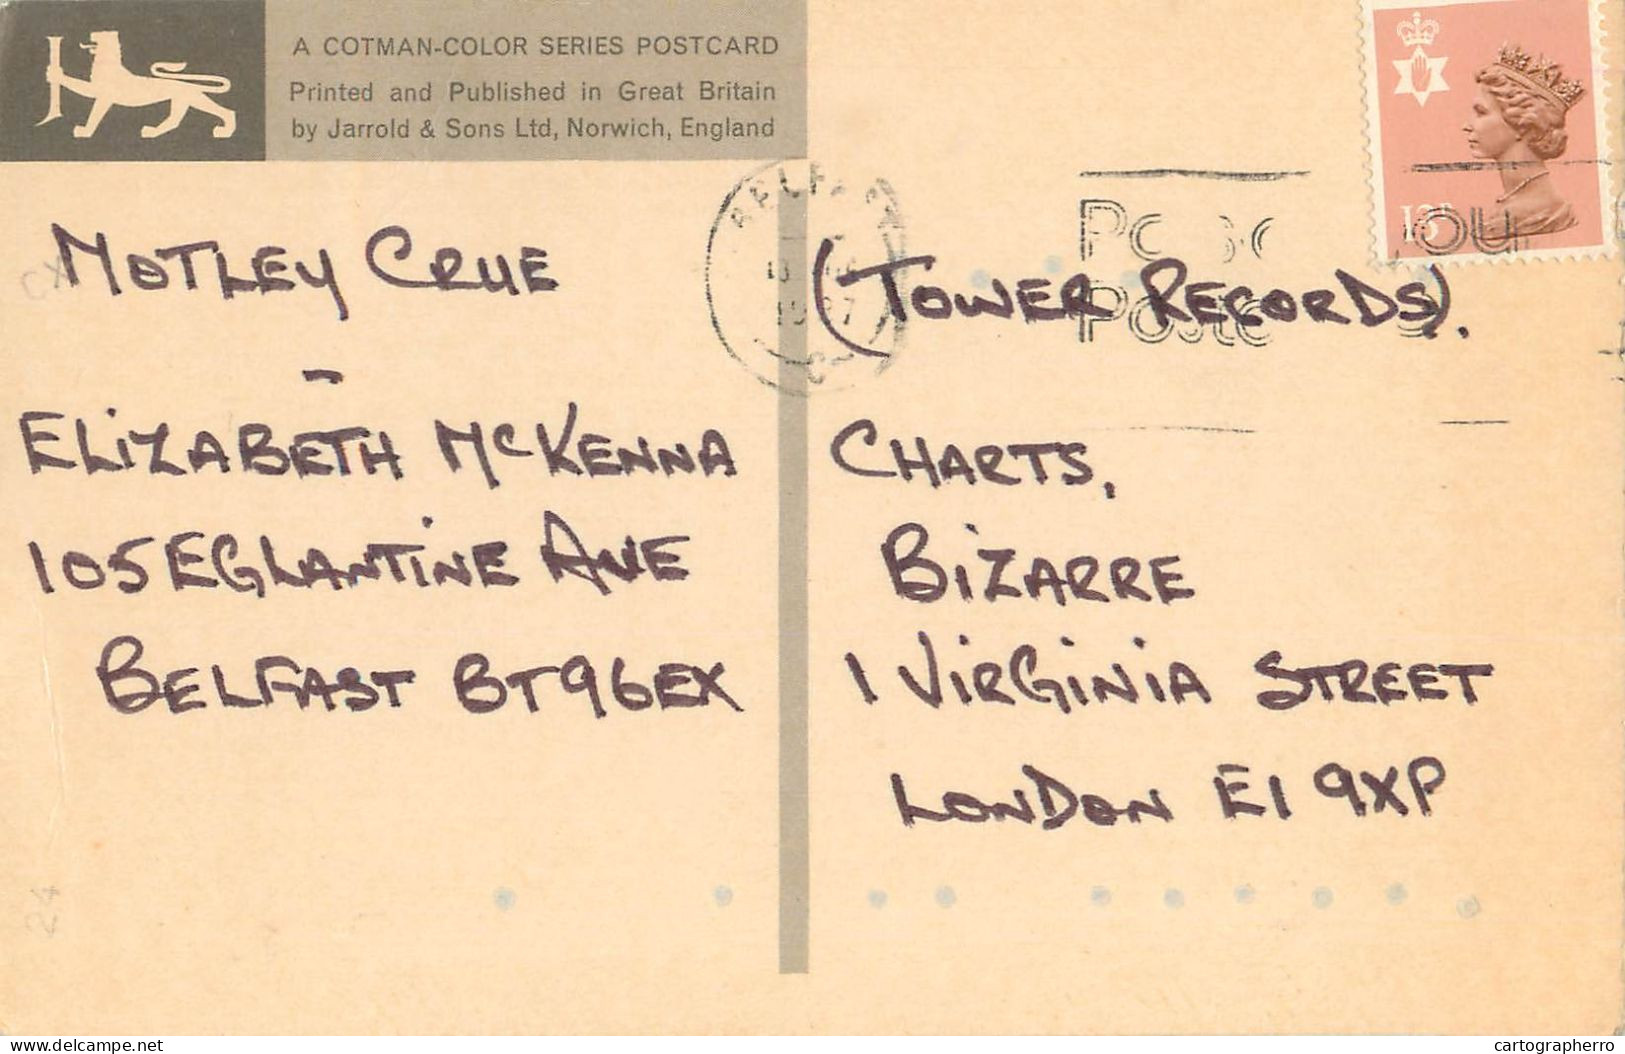 A COTMAN-COLOR SERIES POSTCARD
Printed and Published in Great Britain
by Jarrold & Sons Ltd, Norwich, England
BELFAST
13P
MOTLEY CRUE
-
ELIZABETH MCKENNA
105 EGLANTINE AVE
BELFAST BT96EX
(TOWER RECORDS).
CHARTS,
BIZARRE
1 VIRGINIA STREET
LONDON E1 9XP
CX
24
delcampe.net
cartographerro